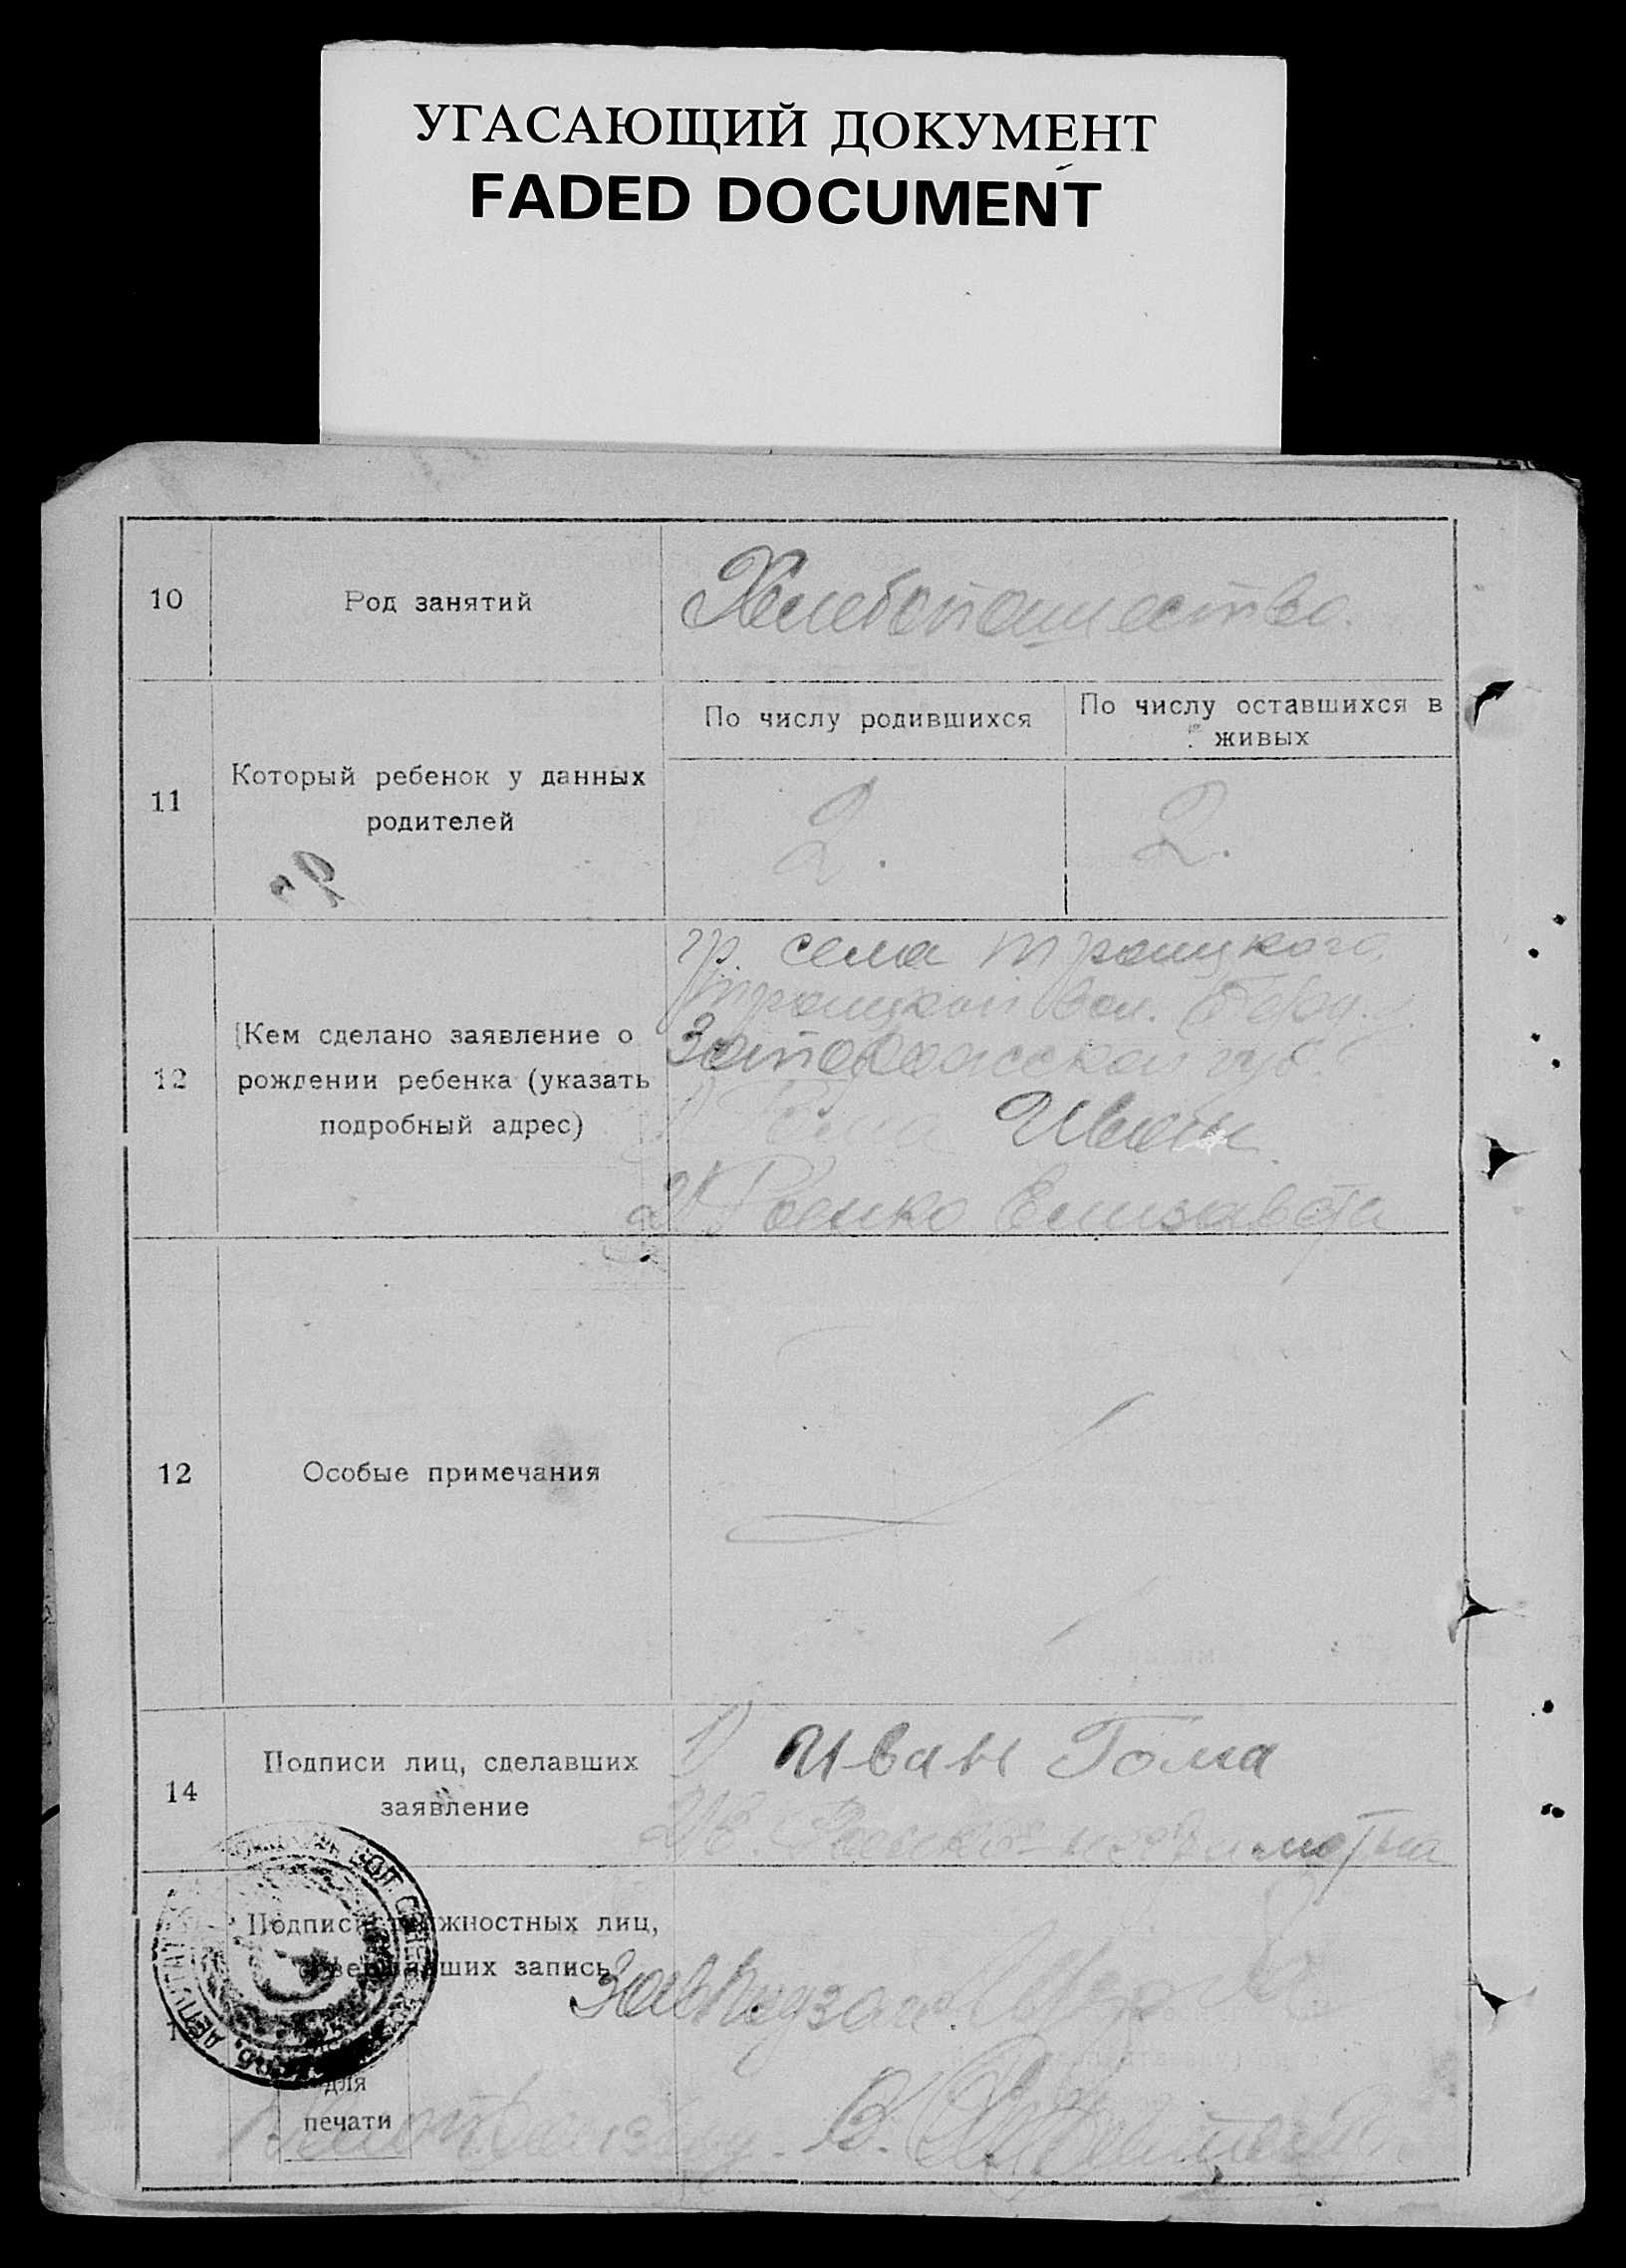 УГАСАЮЩИЙ ДОКУМЕНТ
FADED DOCUMENT
10
Род занятий
Хлебопашество.
11
Который ребенок у данных
родителей
По числу родившихся
По числу оставшихся в
живых
2.
2.
12
Кем сделано заявление о
рождении ребенка (указать
подробный адрес)
гр. села Троицкого,
Троицкой вол. Берд.
Запорожской губ.
1) Гома Иван.
2) Роенко Елизавета
12
Особые примечания
14
Подписи лиц, сделавших
заявление
1) Иван Гома
неграмотна
Подписи должностных лиц,
совершивших запись
для
печати